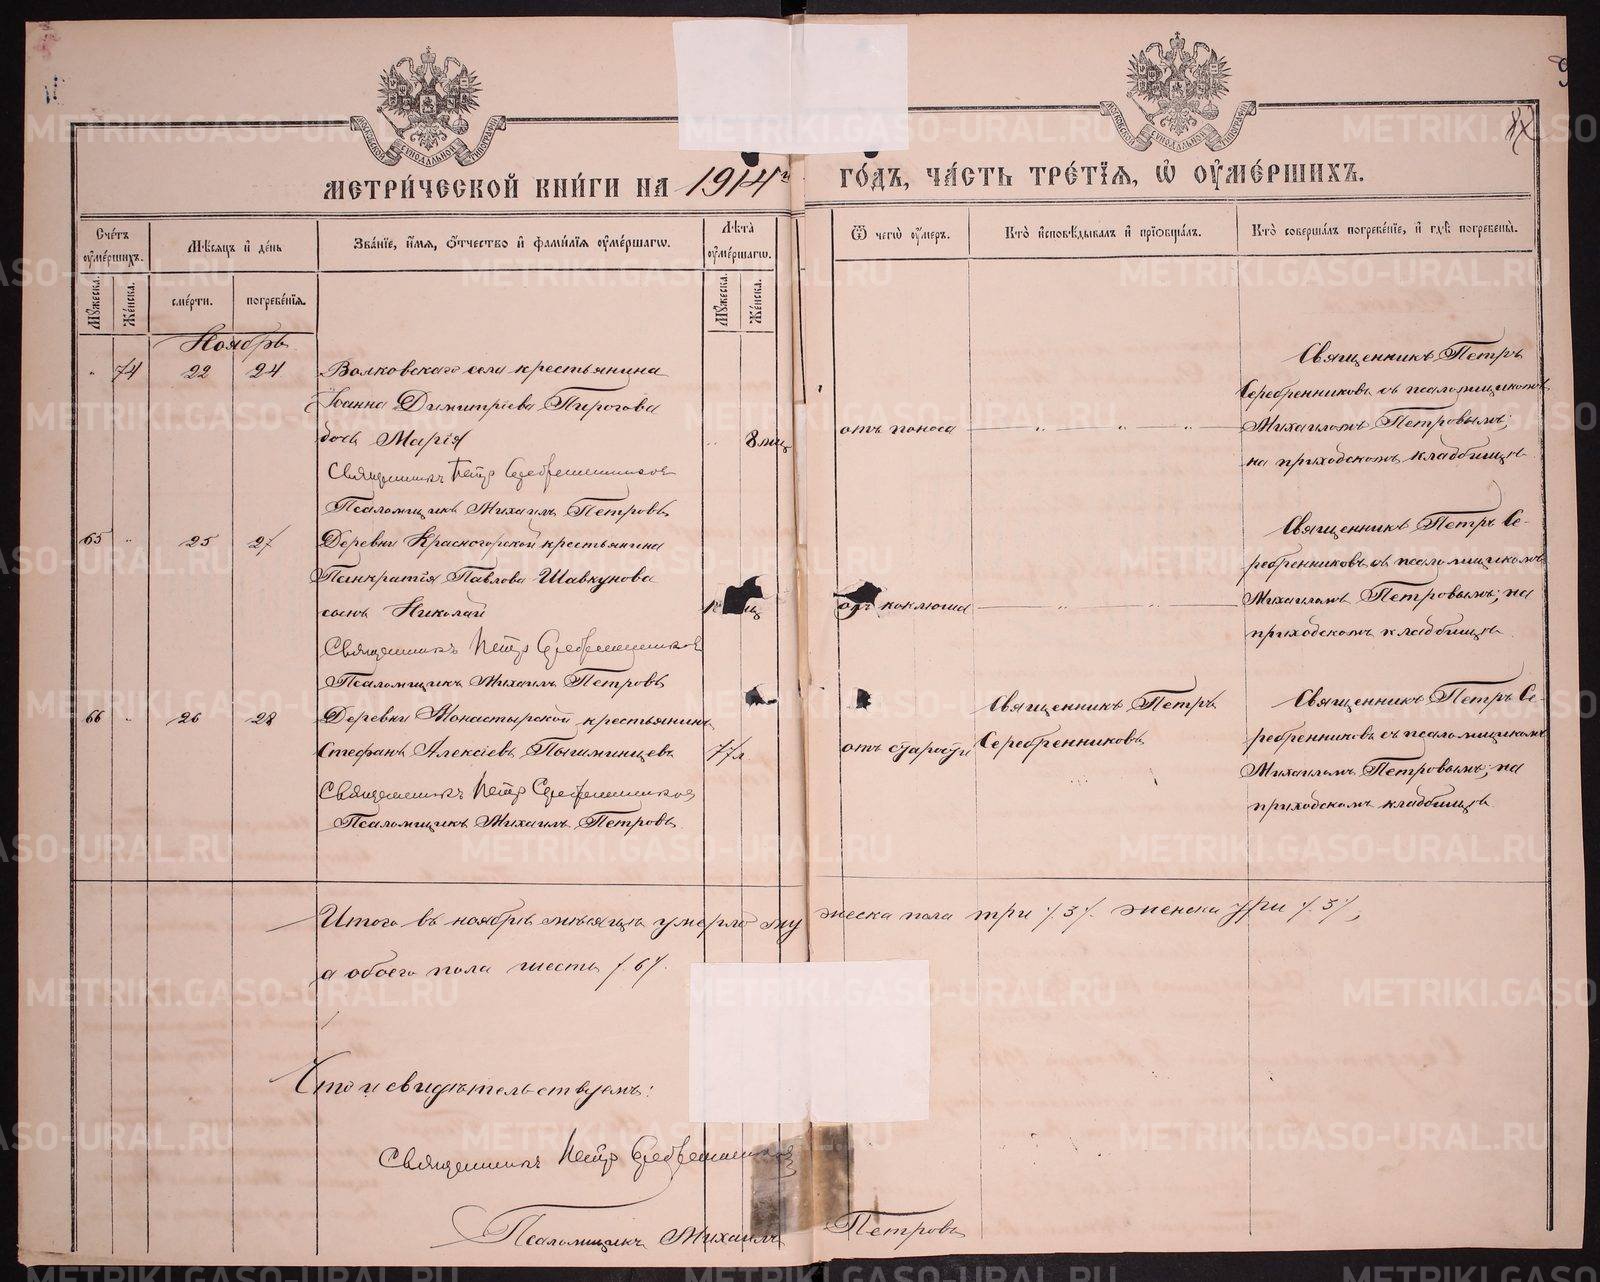 МЕТРИ́ЧЕСКОЙ КНИ́ГИ НА 1914й ГО́ДЪ, ЧА́СТЬ ТРЕ́ТЇѦ, Ѡ҆ ОУ҆МЕ́РШИХЪ.
Сче́тъ оу҆ме́ршихъ.
Мꙋ́жеска.
Же́нска.
Мѣ́сѧцъ и҆ де́нь
сме́рти.
погребе́нїѧ.
Зва́нїе, и҆́мѧ, ѻ҆́тчество и҆ фами́лїѧ оу҆ме́ршагѡ.
Лѣ̑та̀ оу҆ме́ршагѡ.
Мꙋ́жеска.
Же́нска.
Ѿ чегѡ̀ оу҆́меръ.
Кто̀ и҆сповѣ́дывалъ и҆ прїѡбща́лъ.
Кто̀ соверша́лъ погребе́нїе, и҆ гдѣ̀ погребены̀.
Ноябрь
" 74 22 24 Волковскаго села крестьянина
Іоанна Димитріева Пирогова
дочь Марія " 8 мѣц
Священникъ Петръ Серебренниковъ
Псаломщикъ Михаилъ Петровъ
отъ поноса " " "
Священникъ Петръ
Серебренниковъ съ псаломщикомъ
Михаиломъ Петровымъ;
на приходскомъ кладбищѣ
65 " 25 27 Деревни Красногорской крестьянина
Панкратія Павлова Шавкунова
сынъ Николай
Священникъ Петръ Серебренниковъ
Псаломщикъ Михаилъ Петровъ
отъ коклюша " "
Священникъ Петръ Се-
ребренниковъ съ псаломщикомъ
Михаиломъ Петровымъ; на
приходскомъ кладбищѣ
66 " 26 28 Деревни Монастырской крестьянинъ
Стефанъ Алексіевъ Пышминцевъ 77 л
Священникъ Петръ Серебренниковъ
Псаломщикъ Михаилъ Петровъ
отъ старости
Священникъ Петръ
Серебренниковъ
Священникъ Петръ Се-
ребренниковъ съ псаломщикомъ
Михаиломъ Петровымъ; на
приходскомъ кладбищѣ
Итого въ ноябрѣ мѣсяцѣ умерло мужеска пола три /.3/. женска три /.3/,
а обоего пола шесть /.6/.
Что и свидѣтельствуемъ:
Священникъ Петръ Серебренниковъ
Псаломщикъ Михаилъ Петровъ
METRIKI.GASO-URAL.RU